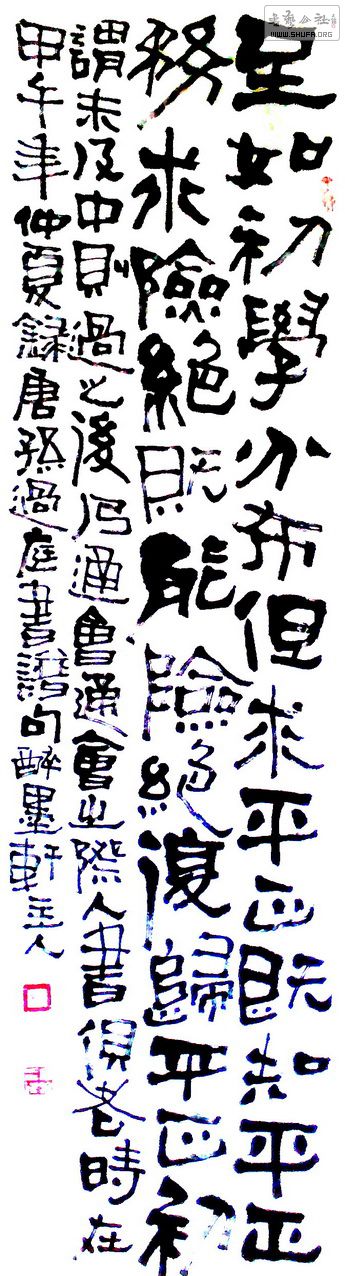 至如初學分布但求平正既知平正
務求險絕既能險絕復歸平正初
謂未及中則過之後乃通會通會之際人書俱老時在
甲午年仲夏録唐孫過庭書譜句醉墨軒主人
WWW.SHUFA.ORG